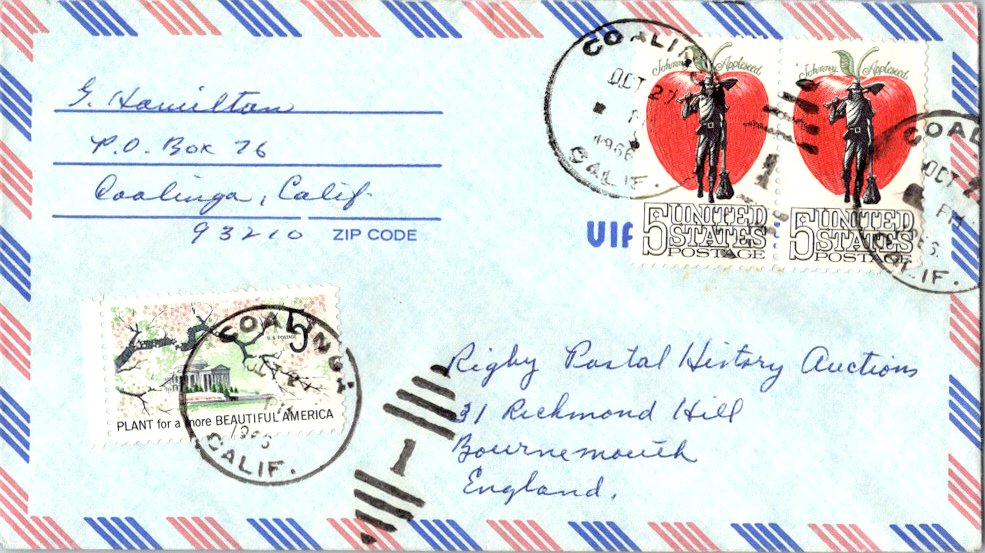 G. Hamilton
P.O. Box 76
Coalinga, Calif
93210 ZIP CODE
COALINGA
OCT
1966
CALIF.
Johnny Appleseed
5 UNITED
STATES
POSTAGE
Johnny Appleseed
5 UNITED
STATES
POSTAGE
COAL
OCT
PM
LIF.
VIA
U.S. POSTAGE
5
PLANT for a more BEAUTIFUL AMERICA
COALINGA
CALIF.
1
Rigby Postal History Auctions
31 Richmond Hill
Bournemouth
England.